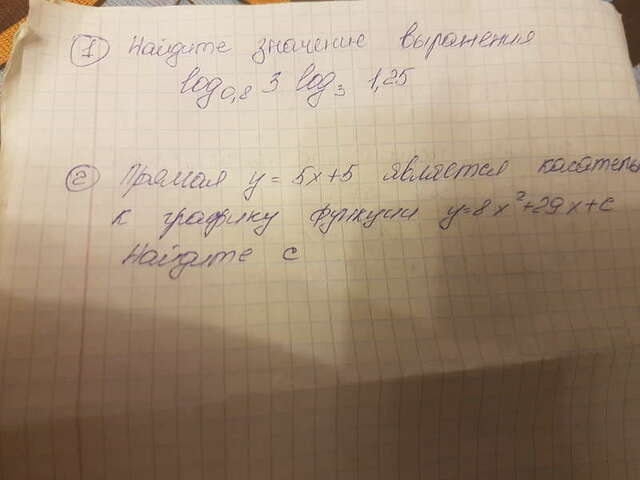 ① Найдите значение выражения
log₀,₈ 3 log₃ 1,25
② Прямая y = 5x+5 является касатель
к графику функции y=8x²+29x+c
Найдите c